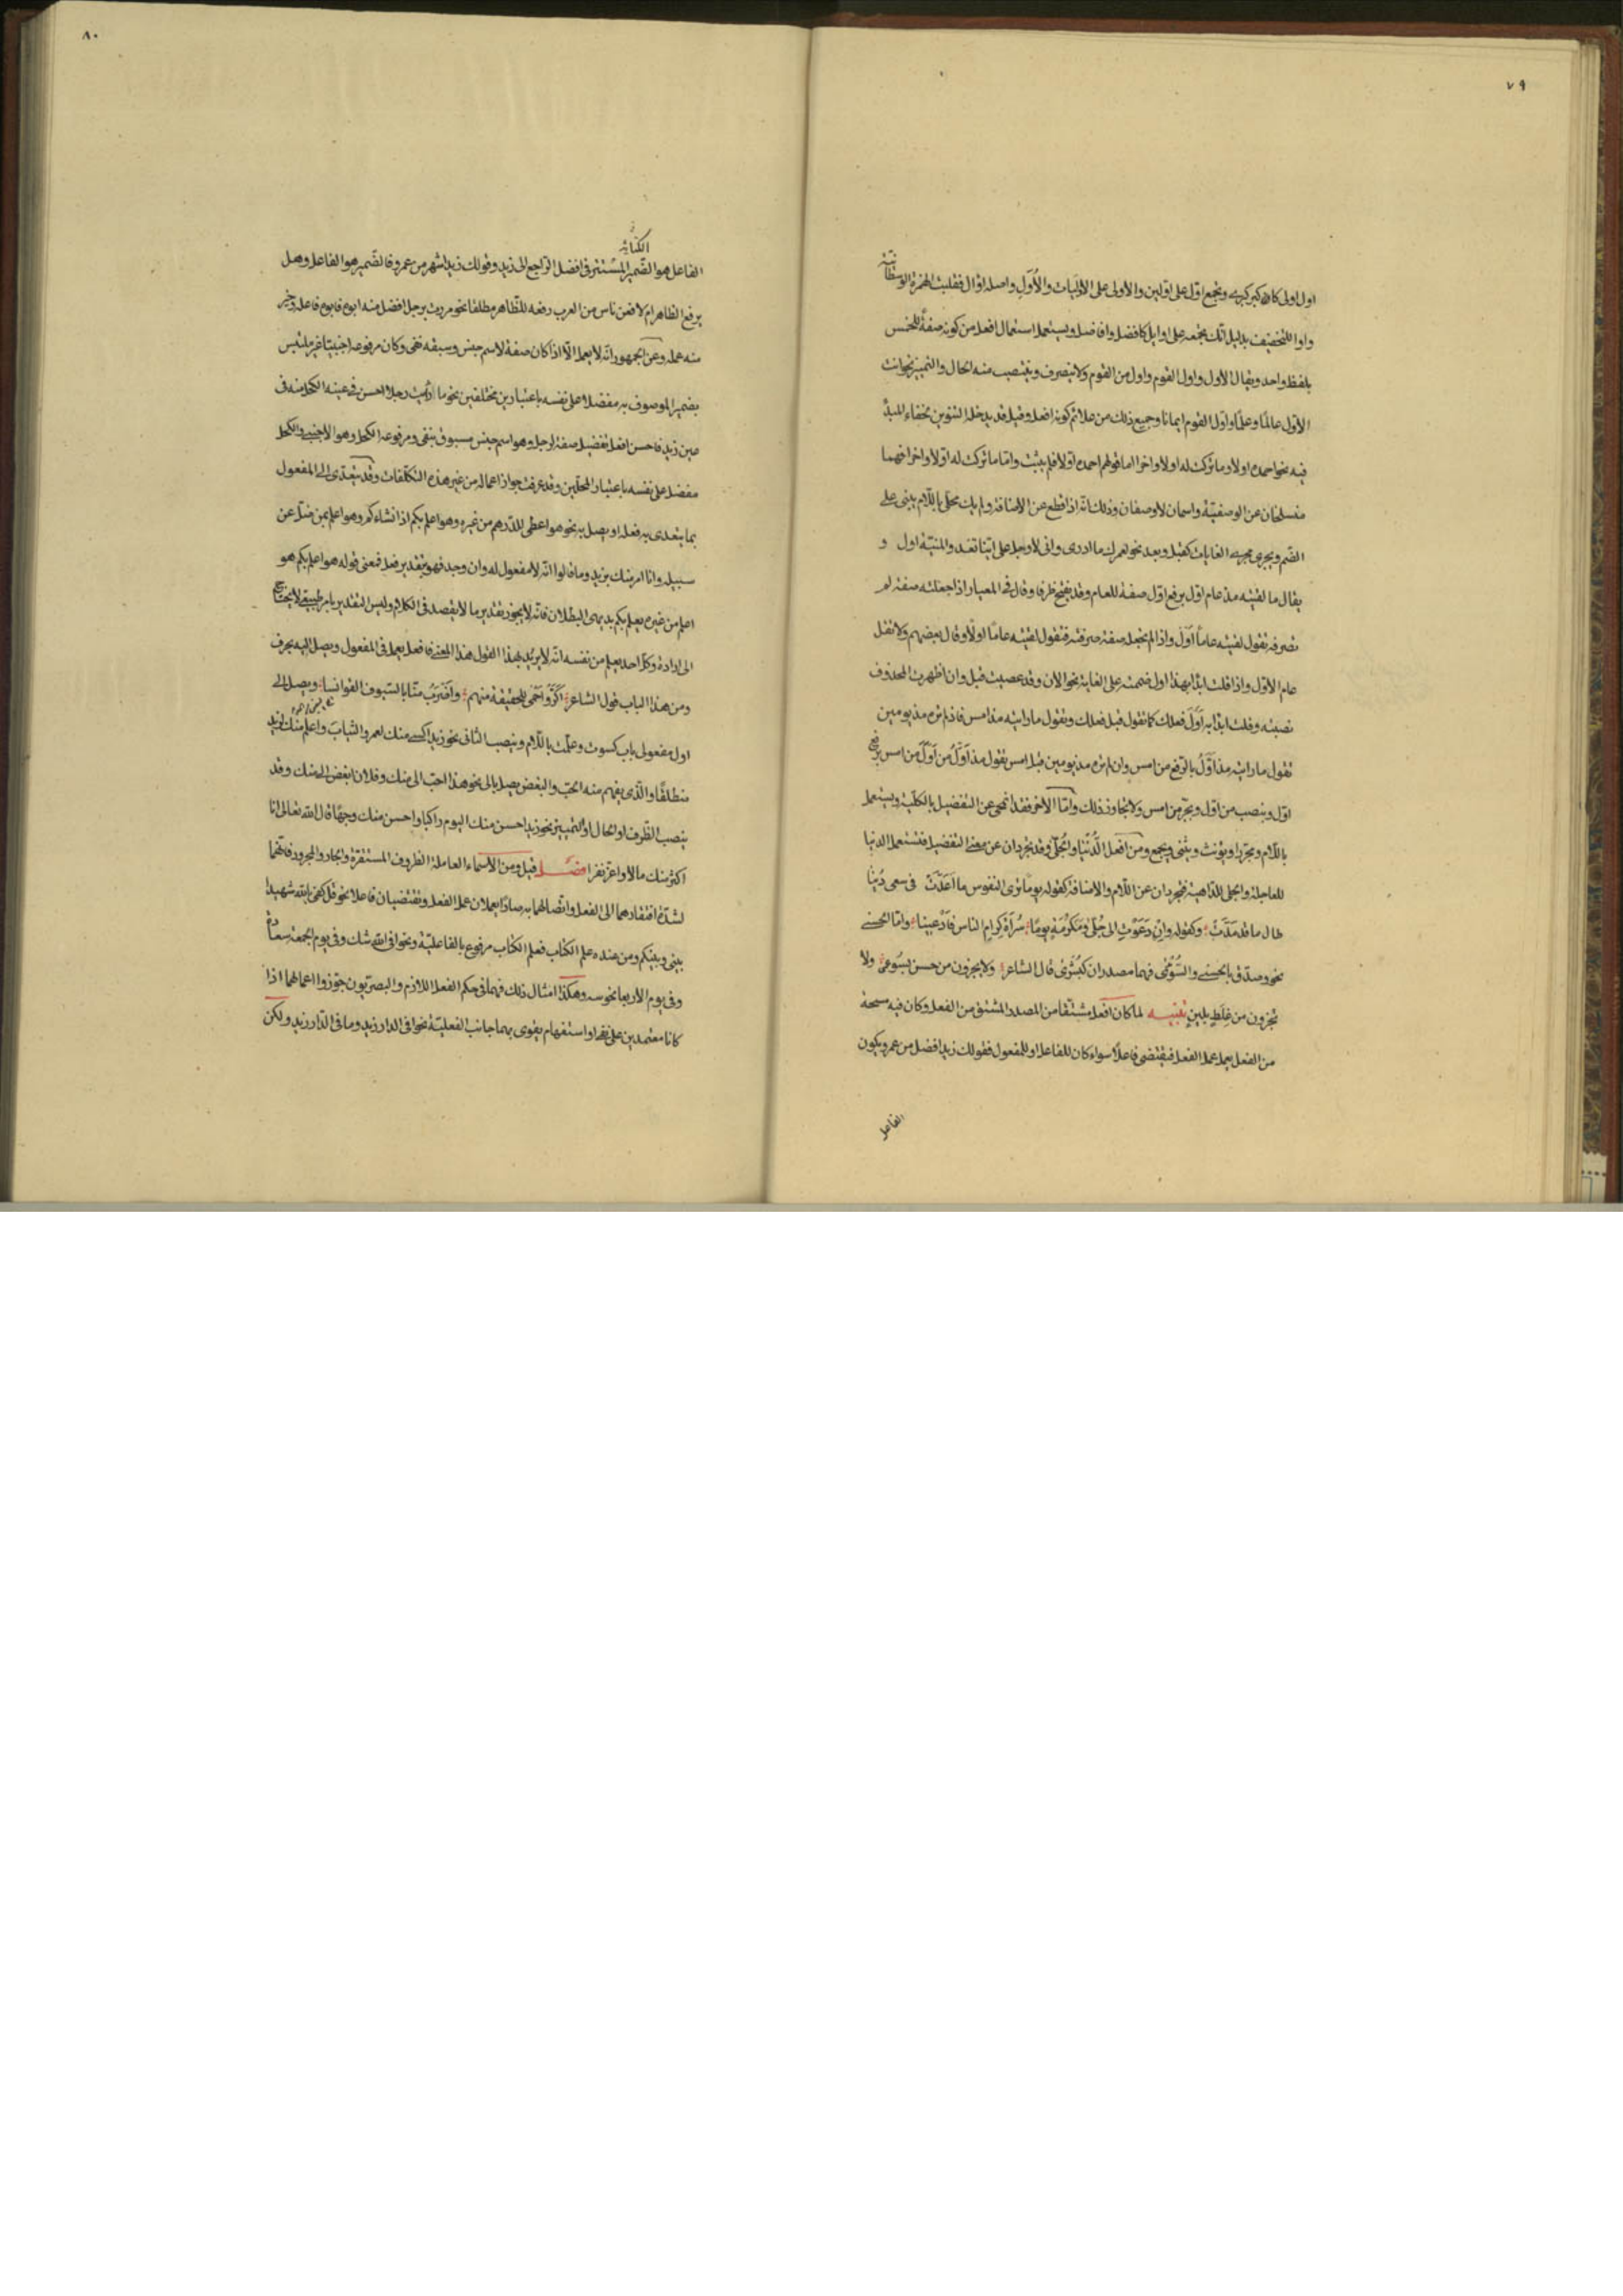 ٧٩
اول اولى كاكبر كبرى ويجمع اوّل على اوّلين والأولى على الأوليات والأُوَل واصله اوّال فقلبت الهمزة الوسطانية
واوا للتخفيف بدليل انك تجمعه على اوايل كافضل وافاضل ويستعمل استعمال افعل من كونه صفةً للجنس
بلفظ واحد ويقال الأول واول القوم واول من القوم ولا ينصرف وينتصب منه الحال والتمييز نحو انت
الأوّل عالمًا وعلمًا واوّل القوم ايمانا وجميع ذلك من علائم كونه افعل وقيل قد يدخله التنوين لخفاء
فيه نحو احمده اولا وما تركت له اولا واخرا اما قولهم احمده اوّلا فلم يثبت واما ما تركت له اوّلا واخرا فهما
منسلخان عن الوصفيّة واسمان لا وصفان وذلك انّه اذا قطع عن الاضافة ولم يك محلّى باللّام يبنى على
الضم ويجرى مجرى الغايات كقبل وبعد نحو لعمرك ما ادرى وانى لاوجل على ايّنا تغدو المنيّة اول و
يقال ما لقيته مذ عام اوّل برفع اوّل صفة للعام وقد يفتح ظرفا وقال فى المعيار اذا جعلته صفة لم
تصرفه تقول لقيته عاماً اوّلَ واذا لم تجعله صفة صرفته فتقول لقيته عامًا اولًا وقال بعضهم ولا تقل
عام الاوّل واذا قلت ابدا بهذا اول ضممته على الغاية نحو الان وقد عصيت قبل وان اظهرت المحذوف
نصبته وقلت ابدا به اوّلَ فعلك كما تقول قبل فعلك وتقول ما رايته مذ امس فاذا لم تره مذ يومين
تقول ما رايته مذ اوّلُ بالرفع من امس وان لم تره مذ يومين قبل امس تقول مذ اوّلُ من اوّلَ من امس برفع
اوّل وينصب من اوّل ويجرّ من امس ولا تجاوز ذلك وامّا الآخر فقد انمحى عن التفضيل بالكلّية ويستعمل
باللّام ومجرّدا ويؤنث ويثنّى ويجمع ومن افعل الدُّنيا والجُلّى وقد تجرّدان عن معنى التفضيل فتستعمل الدنيا
للعاجلة والجلى للدّاهية فتجردان عن اللّام والاضافة كقوله يومًا ترى النفوس ما اعدّت فى سعى دُنيا
طال ما قد مدّت وكقوله وان دَعَوْتِ الى جُلّى ومَكرُمَةٍ يومًا سُراةَ كرامِ الناس فادْعينا وامّا الحُسنى
نحو وصدّق بالحسنى والسُّوئى فهما مصدران كبُشرى قال الشاعر ولا يجزون من حسن بسُوءى ولا
يجزون من غِلَظٍ بلين تنبيه لما كان افعل مشتقّا من المصدر المشتق من الفعل وكان فيه سمحة
من الفعل يعمل عمل الفعل فيقتضى فاعلًا سواء كان للفاعل او للمفعول فقولك زيد افضل من عمرو يكون
الفاعل
٨٠
الكنائه
الفاعل هو الضّمير المستتر فى افضل الراجع الى زيد وقولك زيد اشهر من عمرو فالضّمير هو الفاعل وهل
يرفع الظاهر ام لا فعن ناس من العرب رفعه للظاهر مطلقا نحو مررت برجل افضل منه ابوه فابوه فاعله وخير
منه عمله وعن الجمهور انّه لا يعمل الّا اذا كان صفة لاسم جنس وسبقه نفى وكان مرفوعه اجنبيّا غير ملتبس
بضمير الموصوف به مفضلا على نفسه باعتبارين مختلفين نحو ما رأيت رجلا احسن فى عينه الكحل منه فى
عين زيد فاحسن افعل تفضيل صفة لرجل وهو اسم جنس مسبوق بنفى ومرفوعه الكحل وهو الاجنبى والكحل
مفضل على نفسه باعتبار المحلّين وقد عرفت جواز اعماله من غير هذه التكلّفات وقد يتعدّى الى المفعول
بما يتعدى به فعله او يصل به نحو هو اعطى للدرهم من غيره وهو اعلم بكم اذ انشاءكم وهو اعلم بمن ضلّ عن
سبيله وانا امرّ منك بزيد وما قالوا انّه لا مفعول له وان وجد فهو بتقدير فعل فمعنى قوله هو اعلم بكم هو
اعلم من غيره يعلم بكم بديهى البطلان فانّه لا يجوز تقدير ما لا يقصد فى الكلام وليس التقدير بامر طبيعى لا يحتاج
الى ارادة وكلّ احد يعلم من نفسه انّه لا يريد بهذا القول هذا المعنى فافعل يعمل فى المفعول ويصل اليه بحرف
ومن هذا الباب قول الشاعر اكرَّ واحْمى للحقيقة منهم واضْرَبُ منّا بالسّيوف القوانسا ويصل الى
اول مفعولى باب كسوت وعلّمت باللّام وينصب الثانى نحو زيد اكسى منك لعمرو الثيابَ واعلم منك لزيد
منطلقًا والّذى يفهم منه الحبّ والبغض يصل بالى نحو هذا احبّ الىّ منك وفلان ابغض الىّ منك وقد
ينصب الظّرف او الحال او التّمييز نحو زيد احسن منك اليوم راكبا واحسن منك وجهًا قال الله تعالى انا
اكثر منك مالا واعزّ نفرا فصل قيل ومن الأسماء العاملة الظروف المستقرّة والجار والمجرور فانّهما
لشدّة افتقارهما الى الفعل واتّصالهما به صارا يعملان عمل الفعل ويقتضيان فاعلا نحو قل كفى بالله شهيدا
بينى وبينكم ومن عنده علم الكتاب فعلم الكتاب مرفوع بالفاعليّة ونحو افى الله شك وفى يوم الجمعة سعادة
وفى يوم الاربعا نحوسه وهكذا امثال ذلك فهما فى حكم الفعل اللازم والبصريّون جوّزوا اعمالهما اذا
كانا معتمدين على نفى او استفهام يقوى بهما جانب الفعليّة نحو افى الدار زيد وما فى الدّار زيد ولكن